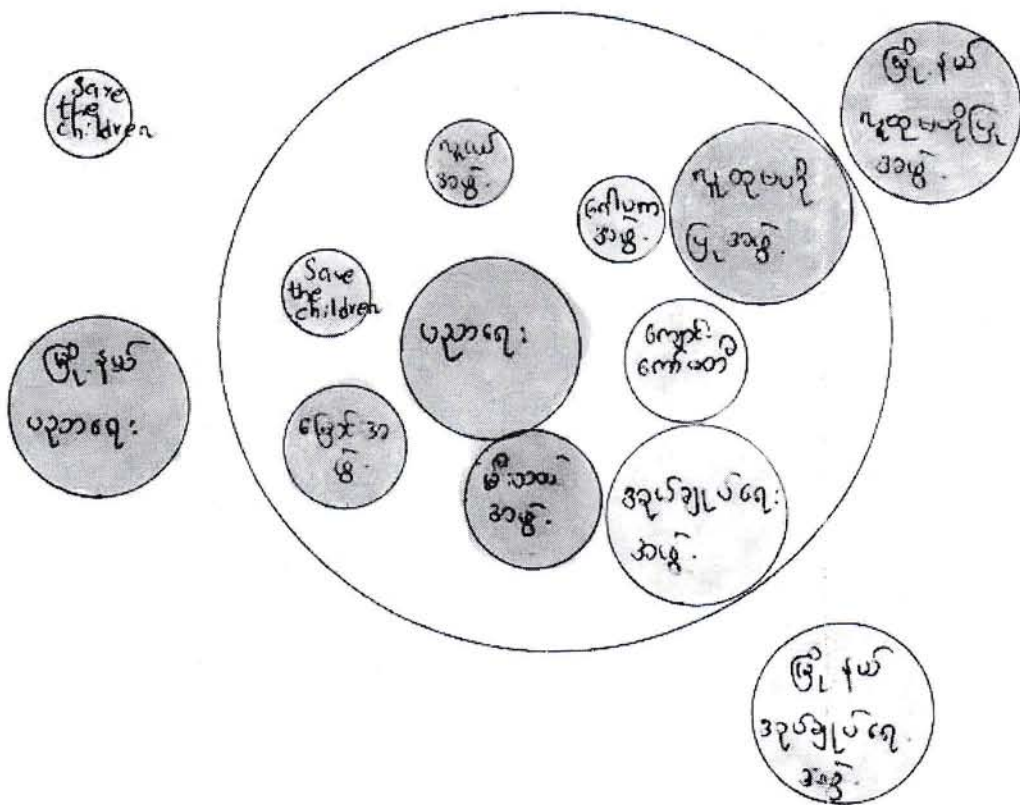 Save
the
children
မြို့နယ်
လူထုဗဟိုပြု
အဖွဲ့
လူငယ်
အဖွဲ့
ဂေါပက
အဖွဲ့
လူထုဗဟို
ပြုအဖွဲ့
Save
the
children
ပညာရေး
ကျောင်း
ကော်မတီ
မြို့နယ်
ပညာရေး
အဖွဲ့
မီးသတ်
အဖွဲ့
အုပ်ချုပ်ရေး
အဖွဲ့
မြို့နယ်
အုပ်ချုပ်ရေး
အဖွဲ့